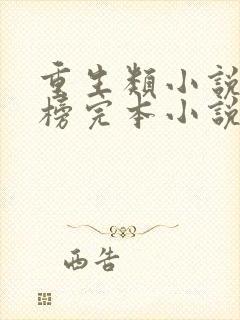 重生類小說
榜完本小說
西告